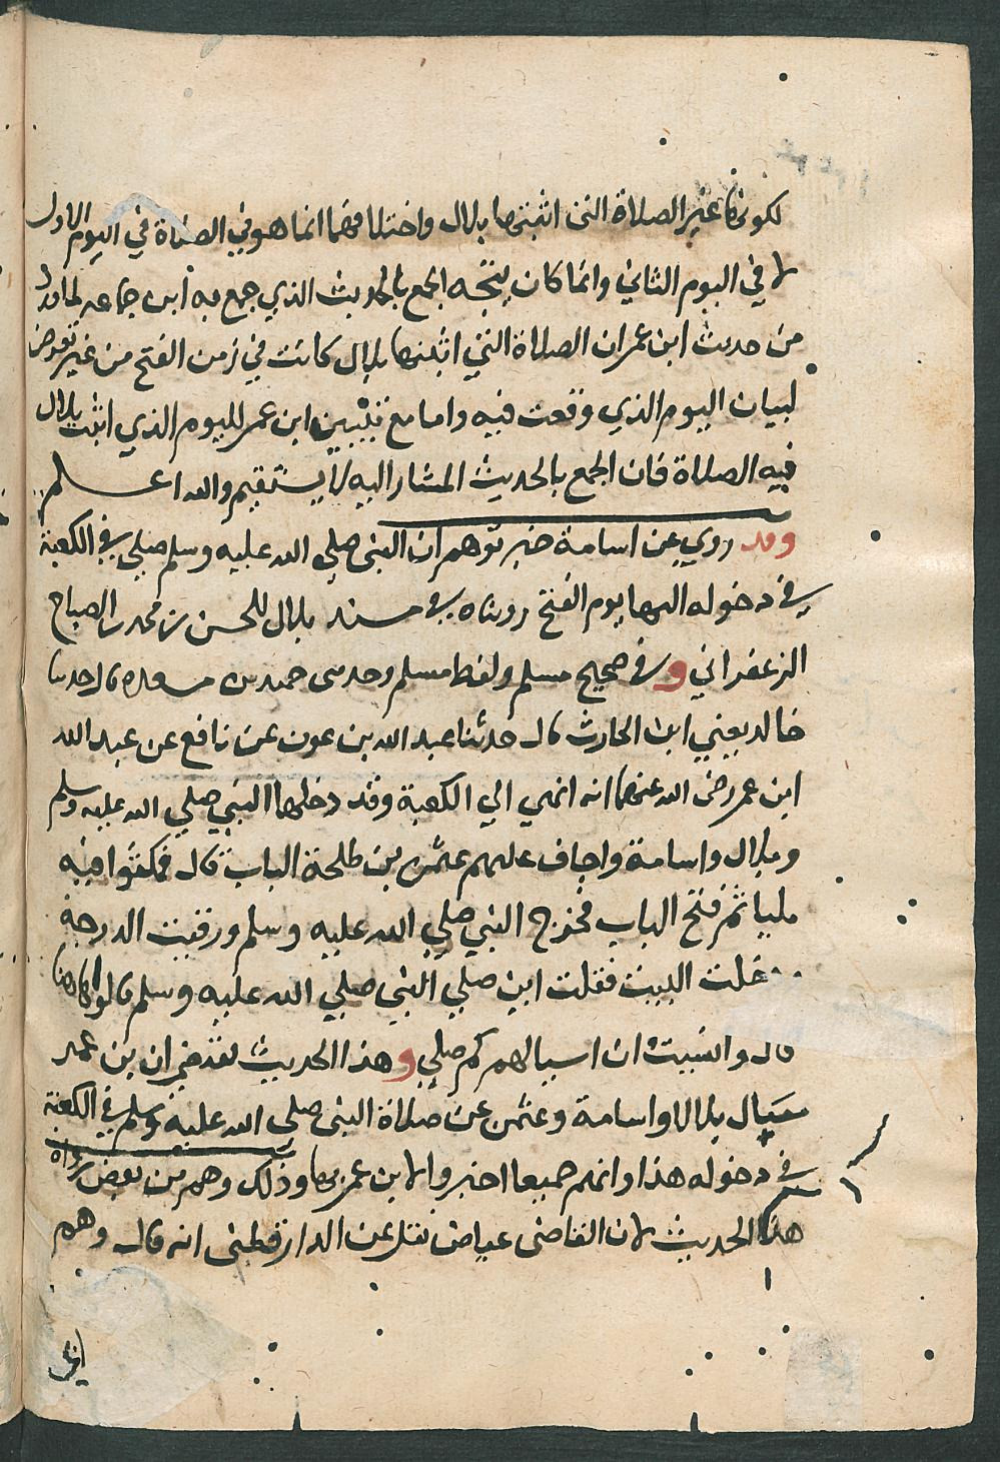 لكونها غير الصلاة التى اثبتها بلال واختلافهما انما هو في الصلاة في اليوم الاول
لا في اليوم الثاني وانما كان يتجه الجمع بالحديث الذي جمع به ابن جماعه لما ورد
من حديث ابن عمر ان الصلاة التي اثبتها بلال كانت في زمن الفتح من غير تعرض
لبيان اليوم الذي وقعت فيه واما مع تبيين ابن عمر لليوم الذي اثبت بلال
فيه الصلاة فان الجمع بالحديث المشار اليه لا يستقيم والله اعلم
وقد روي عن اسامة خبر توهم ان النبى صلي الله عليه وسلم صلي في الكعبة
في دخوله اليها يوم الفتح رويناه في مسند بلال للحسن بن محمد بن الصباح
الزعفراني و في صحيح مسلم ولفظ مسلم وحدثنى حميد بن مسعدة قال حدثنا
خالد يعني ابن الحارث قال حدثنا عبد الله بن عون عن نافع عن عبد الله
ابن عمر رضى الله عنهما انه انتهي الي الكعبة وقد دخلها النبي صلي الله عليه وسلم
وبلال واسامة واجاف عليهم عثمن بن طلحة الباب قال فمكثوا فيه
مليا ثم فتح الباب فخرج النبي صلي الله عليه وسلم ورقيت الدرجة
فدخلت البيت فقلت اين صلي النبي صلي الله عليه وسلم قالوا هاهنا
قال ونسيت ان اسيالهم كم صلي و هذا الحديث يقتضى ان بن عمر
سيال بلالا واسامة وعثمن عن صلاة النبى صلى الله عليه وسلم في الكعبة
في دخوله هذا وانهم جميعا اخبروا لابن عمر بها وذلك وهم من بعض رواة
هذا الحديث لان القاضى عياض نقل عن الدارقطنى انه قال وهم